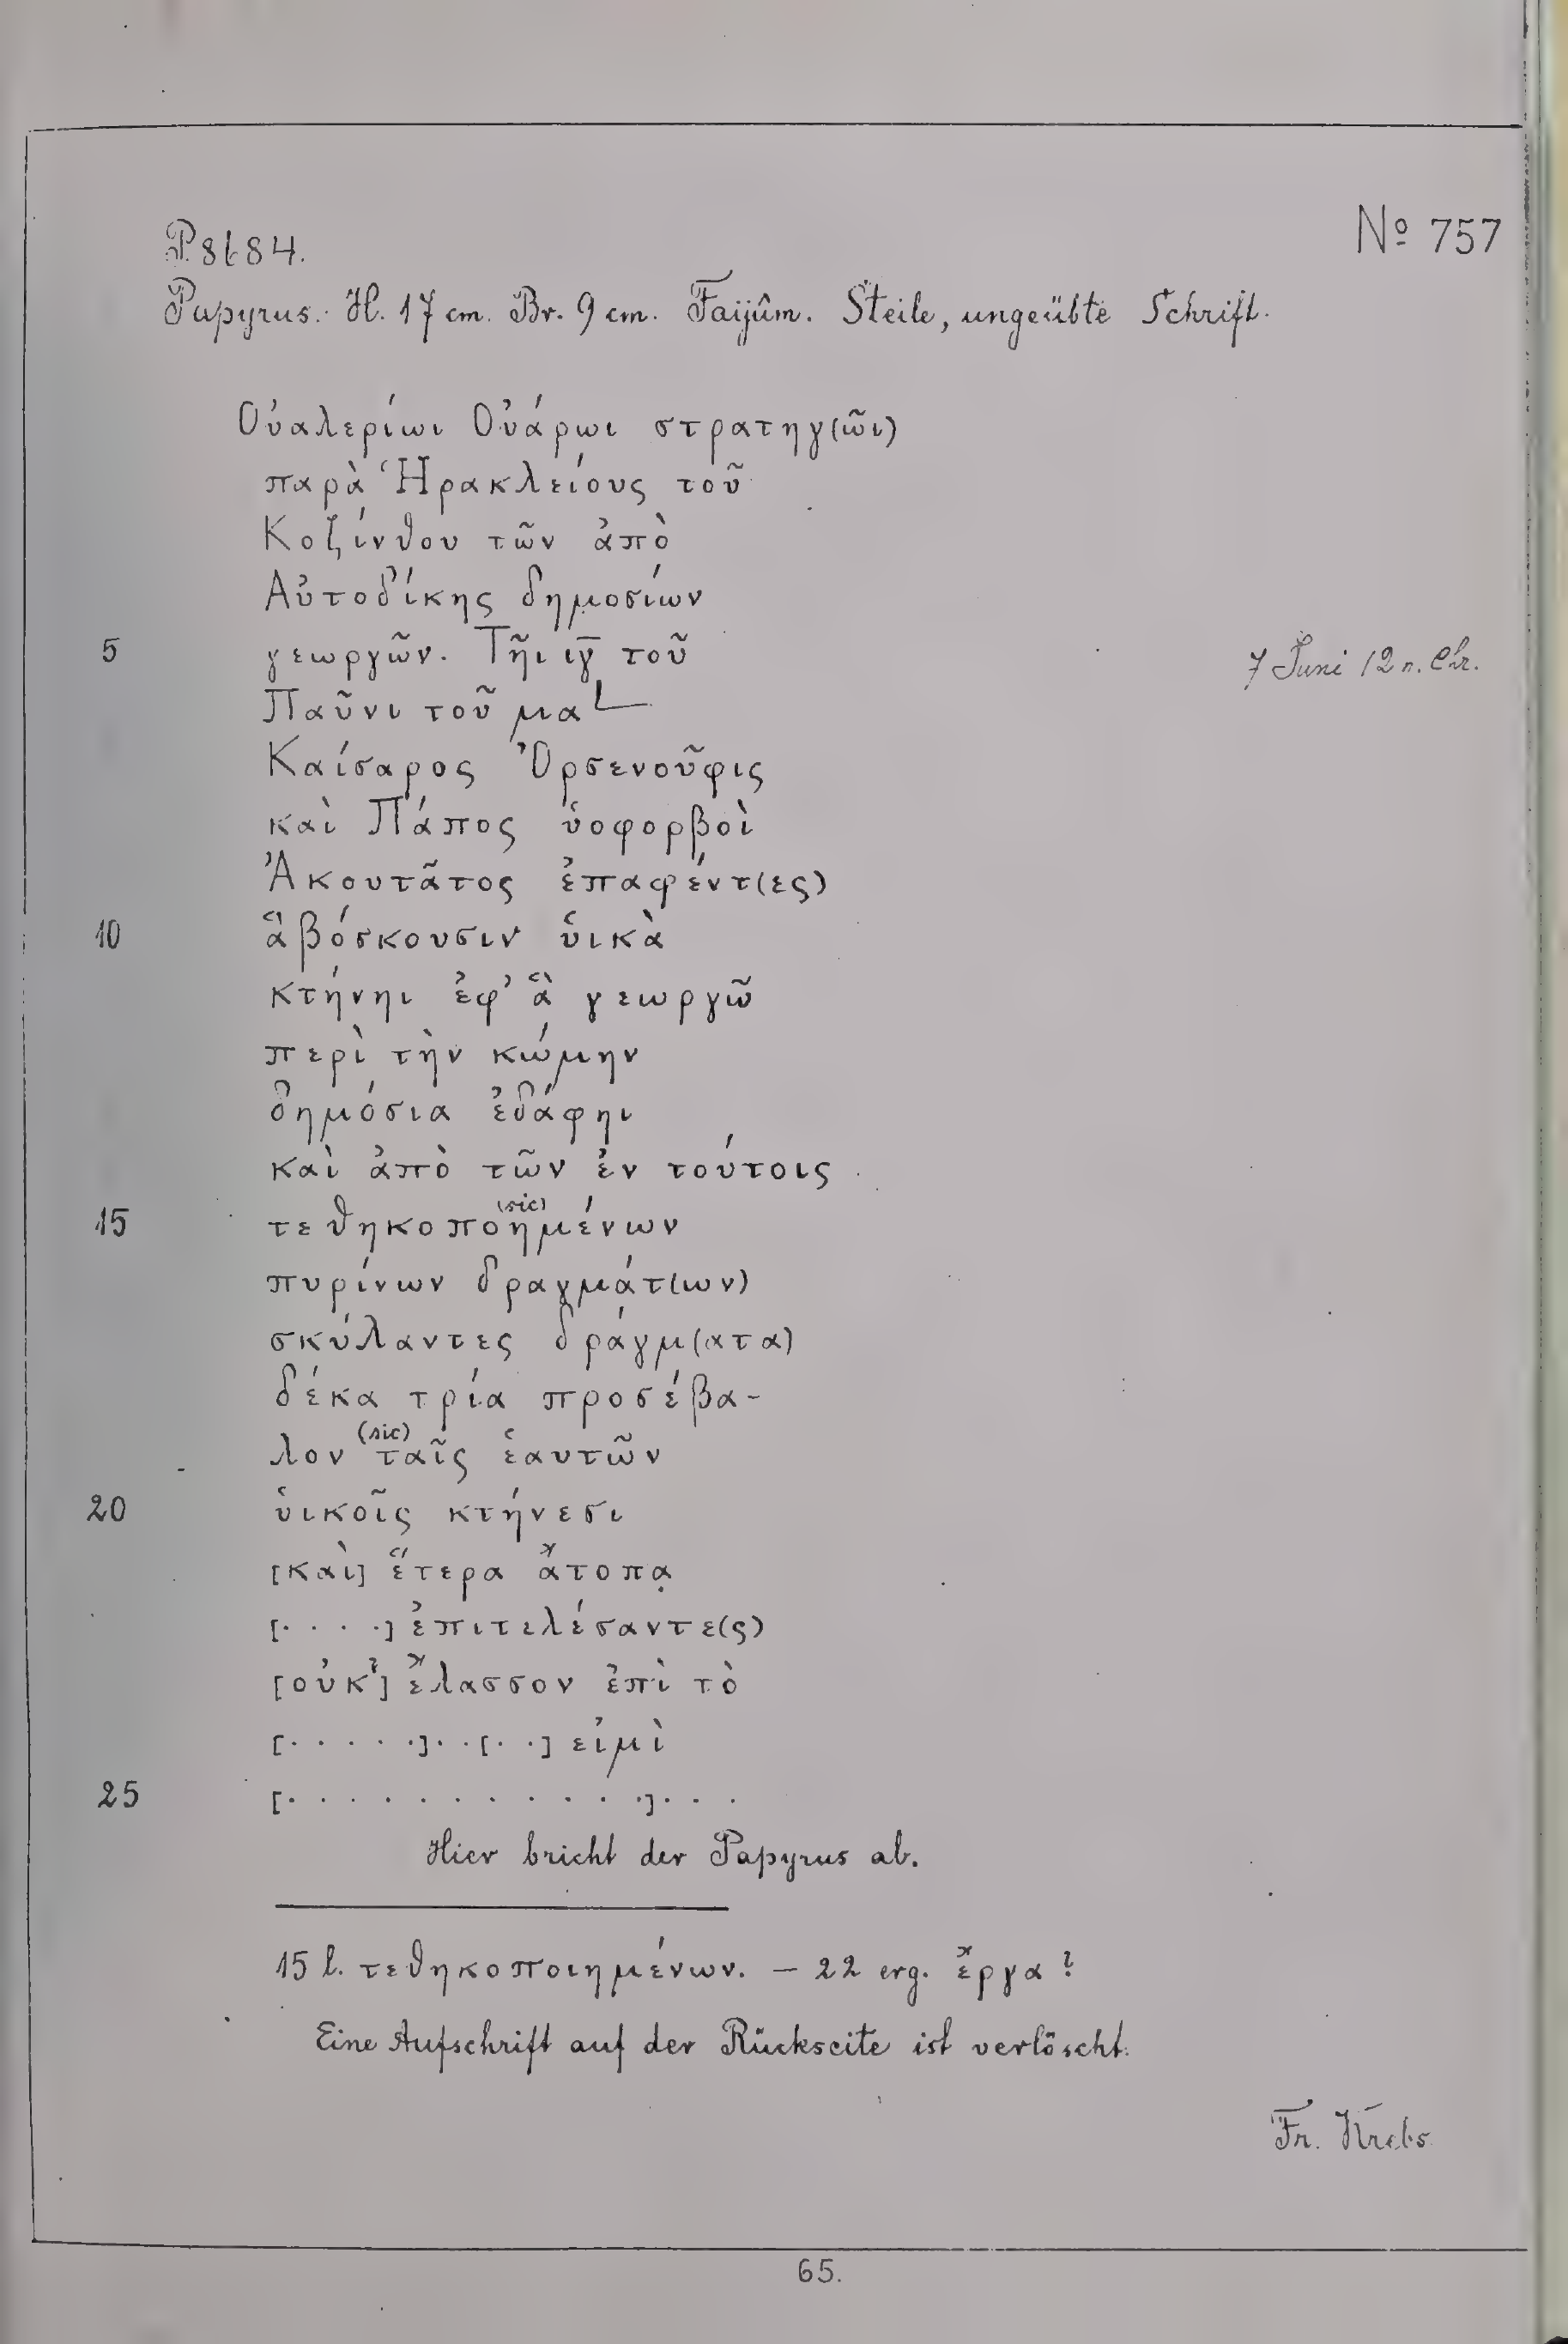 Nº 757
P. 8684.
Papyrus. H. 17 cm. Br. 9 cm. Faijûm. Steile, ungeübte Schrift.
Οὐαλερίωι Οὐάρωι στρατηγ(ῶι)
παρὰ Ἡρακλείους τοῦ
Κοζίνθου τῶν ἀπὸ
Αὐτοδίκης δημοσίων
5 γεωργῶν. Τῆι ιγ̅ τοῦ 7 Juni 12 n. Chr.
Παῦνι τοῦ μα 𐅹
Καίσαρος Ὀρσενοῦφις
καὶ Πάπος ὑοφορβοὶ
Ἀκουτᾶτος ἐπαφέντ(ες)
10 ἃ βόσκουσιν ὑικὰ
κτήνηι ἐφ' ἃ γεωργῶ
περὶ τὴν κώμην
δημόσια ἐδάφηι
καὶ ἀπὸ τῶν ἐν τούτοις
15 τεθηκοποημένων (sic)
πυρίνων δραγμάτ(ων)
σκύλαντες δράγμ(ατα)
δέκα τρία προσέβα-
λον ταῖς (sic) ἑαυτῶν
20 ὑικοῖς κτήνεσι
[καὶ] ἕτερα ἄτοπα̣
[....] ἐπιτελέσαντε(ς)
[οὐκ?] ἔλασσον ἐπὶ τὸ
[.....]..[..] εἰμὶ
25 [............]...
Hier bricht der Papyrus ab.
15 l. τεθηκοποιημένων. — 22 erg. ἔργα?
Eine Aufschrift auf der Rückseite ist verlöscht.
Fr. Krebs
65.